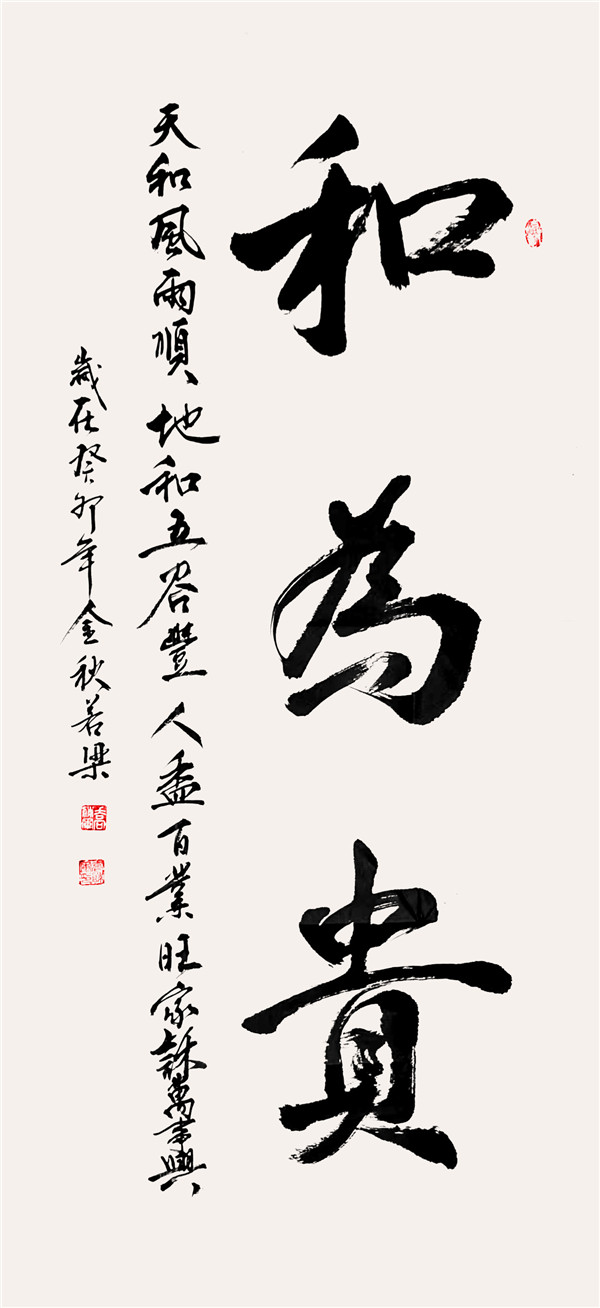 和為貴
天和風雨順、地和五谷豐人盉百業旺家訸萬事興
歲在癸卯年金秋若梁